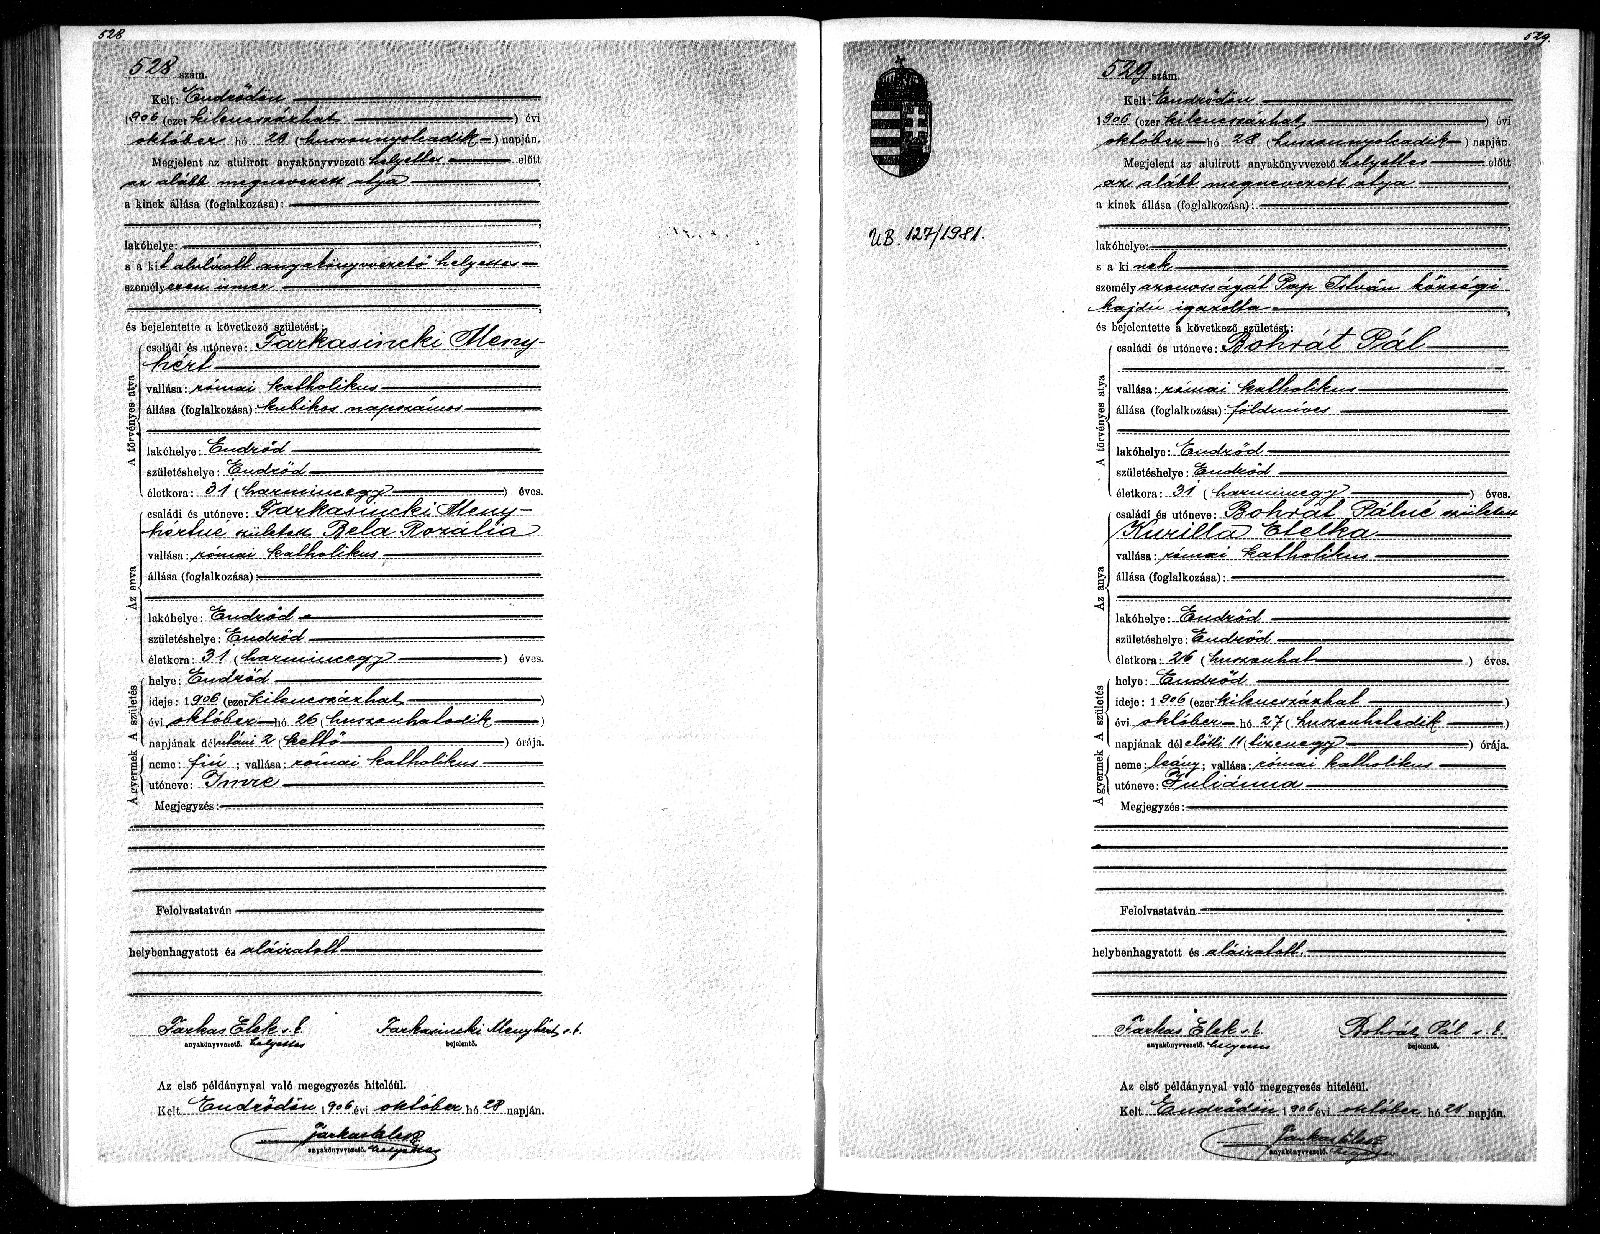 528
528 szám.
Kelt: Endrődön
1906 (ezer kilencszázhat) évi
október hó 28 (huszonnyolcadik) napján.
Megjelent az alulirott anyakönyvvezető helyettes előtt
az alább megnevezett atya
a kinek állása (foglalkozása):
lakóhelye:
s a kit alulirott anyakönyvvezető helyettes
személyesen ismer
és bejelentette a következő születést:
A törvényes atya
családi és utóneve: Farkasincki Meny-
hért
vallása: római katholikus
állása (foglalkozása): kubikos napszámos
lakóhelye: Endrőd
születéshelye: Endrőd
életkora: 31 (harmincegy) éves.
Az anya
családi és utóneve: Farkasincki Meny-
hértné született Bela Rozália
vallása: római katholikus
állása (foglalkozása):
lakóhelye: Endrőd
születéshelye: Endrőd
életkora: 31 (harmincegy) éves.
A születés
helye: Endrőd
ideje: 1906 (ezer kilencszázhat)
évi október hó 26 (huszonhatodik)
napjának délutáni 2 (kettő) órája.
A gyermek
neme: fiú; vallása: római katholikus
utóneve: Imre
Megjegyzés:
Felolvastatván
helybenhagyatott és aláiratott
Farkas Elek s.k. Farkasincki Menyhért s.k.
anyakönyvvezető. helyettes bejelentő.
Az első példánynyal való megegyezés hiteléül.
Kelt Endrődön 1906 évi október hó 28 napján.
Farkas Elek
anyakönyvvezető. helyettes
529.
UB. 127/1981.
529 szám.
Kelt: Endrődön
1906 (ezer kilencszázhat) évi
október hó 28 (huszonnyolcadik) napján.
Megjelent az alulirott anyakönyvvezető helyettes előtt
az alább megnevezett atya
a kinek állása (foglalkozása):
lakóhelye:
s a kinek
személyazonosságát Pap István községi
hajdu igazolta
és bejelentette a következő születést:
A törvényes atya
családi és utóneve: Bohrát Pál
vallása: római katholikus
állása (foglalkozása): földmíves
lakóhelye: Endrőd
születéshelye: Endrőd
életkora: 31 (harmincegy) éves.
Az anya
családi és utóneve: Bohrát Pálné született
Kurilla Etelka
vallása: római katholikus
állása (foglalkozása):
lakóhelye: Endrőd
születéshelye: Endrőd
életkora: 26 (huszonhat) éves.
A születés
helye: Endrőd
ideje: 1906 (ezer kilencszázhat)
évi október hó 27 (huszonhetedik)
napjának délelőtti 11 (tizenegy) órája.
A gyermek
neme: leány; vallása: római katholikus
utóneve: Juliánna
Megjegyzés:
Felolvastatván
helybenhagyatott és aláiratott.
Farkas Elek s.k. Bohrát Pál s.k.
anyakönyvvezető. helyettes bejelentő.
Az első példánynyal való megegyezés hiteléül.
Kelt Endrődön 1906 évi október hó 28 napján.
Farkas Elek
anyakönyvvezető. helyettes